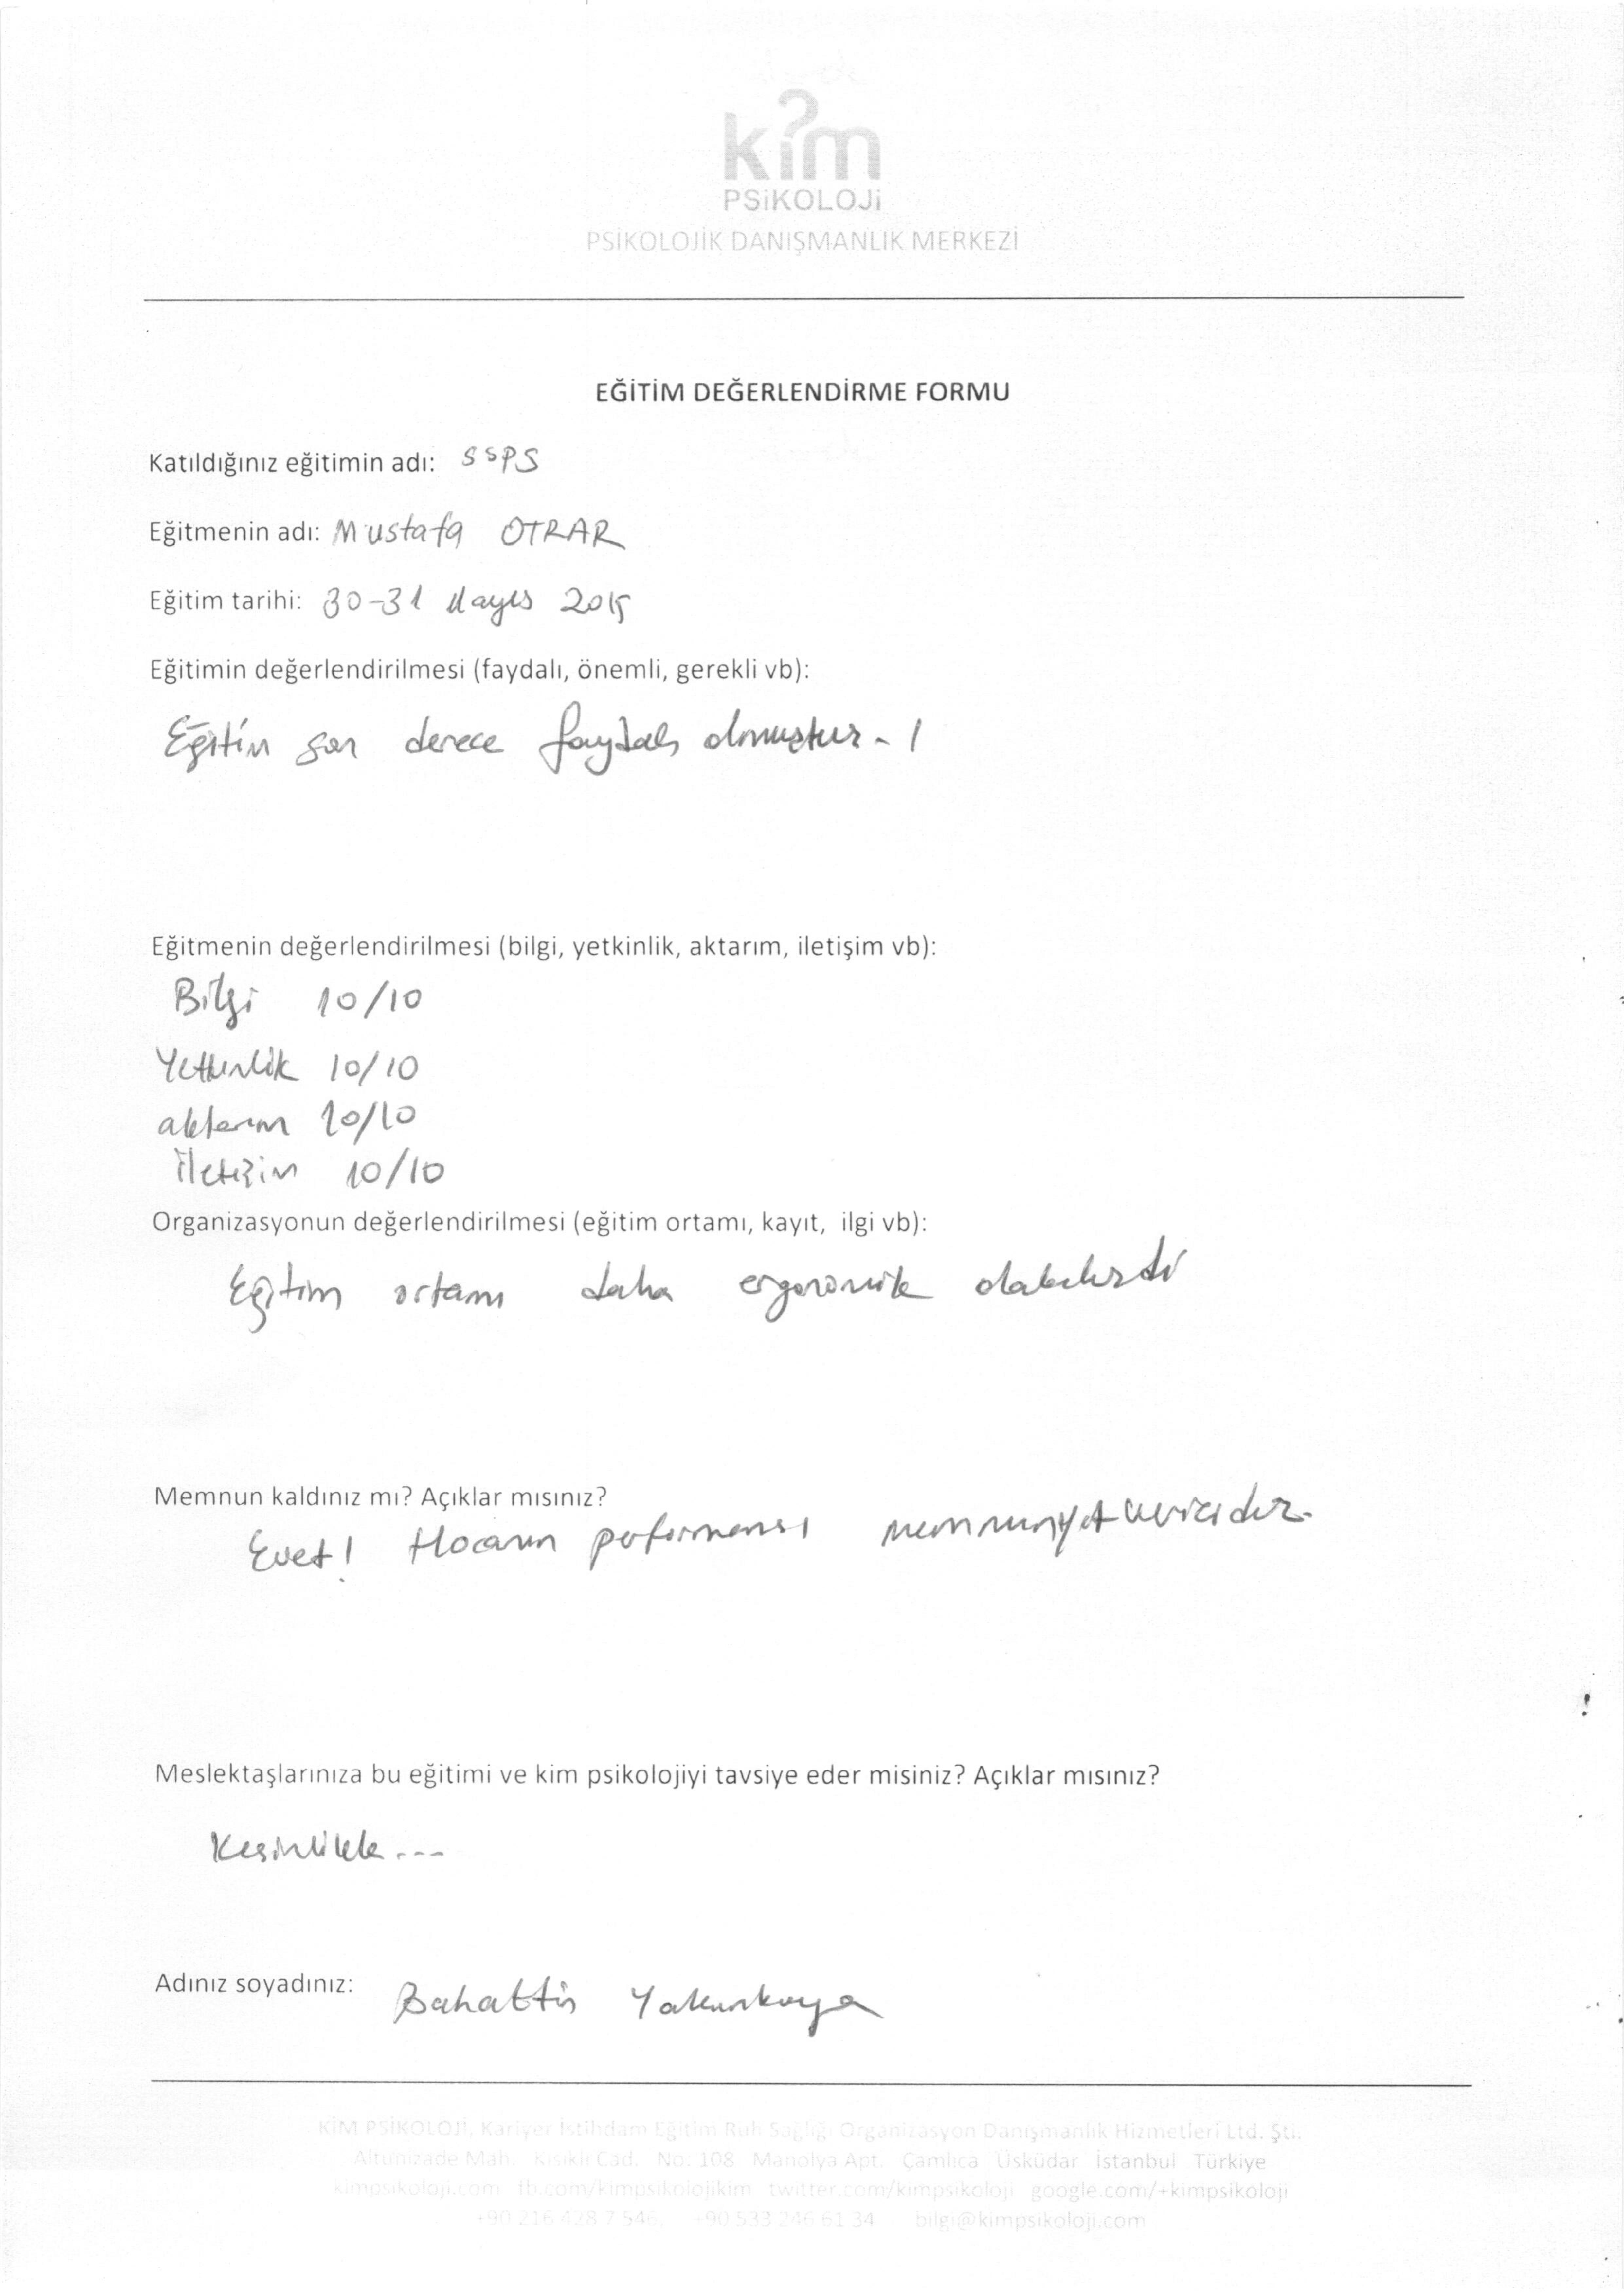 kim
PSiKOLOJi
PSİKOLOJİK DANIŞMANLIK MERKEZİ
EĞİTİM DEĞERLENDİRME FORMU
Katıldığınız eğitimin adı: SSPS
Eğitmenin adı: Mustafa OTRAR
Eğitim tarihi: 30-31 Mayıs 2015
Eğitimin değerlendirilmesi (faydalı, önemli, gerekli vb):
Eğitim son derece faydalı olmuştur - !
Eğitmenin değerlendirilmesi (bilgi, yetkinlik, aktarım, iletişim vb):
Bilgi 10/10
Yetkinlik 10/10
aktarım 10/10
İletişim 10/10
Organizasyonun değerlendirilmesi (eğitim ortamı, kayıt, ilgi vb):
Eğitim ortamı daha ergonomik olabilirdi
Memnun kaldınız mı? Açıklar mısınız?
Evet! Hocanın performansı memnuniyet vericidir.
Meslektaşlarınıza bu eğitimi ve kim psikolojiyi tavsiye eder misiniz? Açıklar mısınız?
Kesinlikle ...
Adınız soyadınız: Bahattin Yalçınkaya
KİM PSİKOLOJİ, Kariyer İstihdam Eğitim Ruh Sağlığı Organizasyon Danışmanlık Hizmetleri Ltd. Şti.
Altunizade Mah. Kısıklı Cad. No: 108 Manolya Apt. Çamlıca Üsküdar İstanbul Türkiye
kimpsikoloji.com fb.com/kimpsikolojikim twitter.com/kimpsikoloji google.com/+kimpsikoloji
+90 216 428 7 546, +90 533 246 61 34 bilgi@kimpsikoloji.com